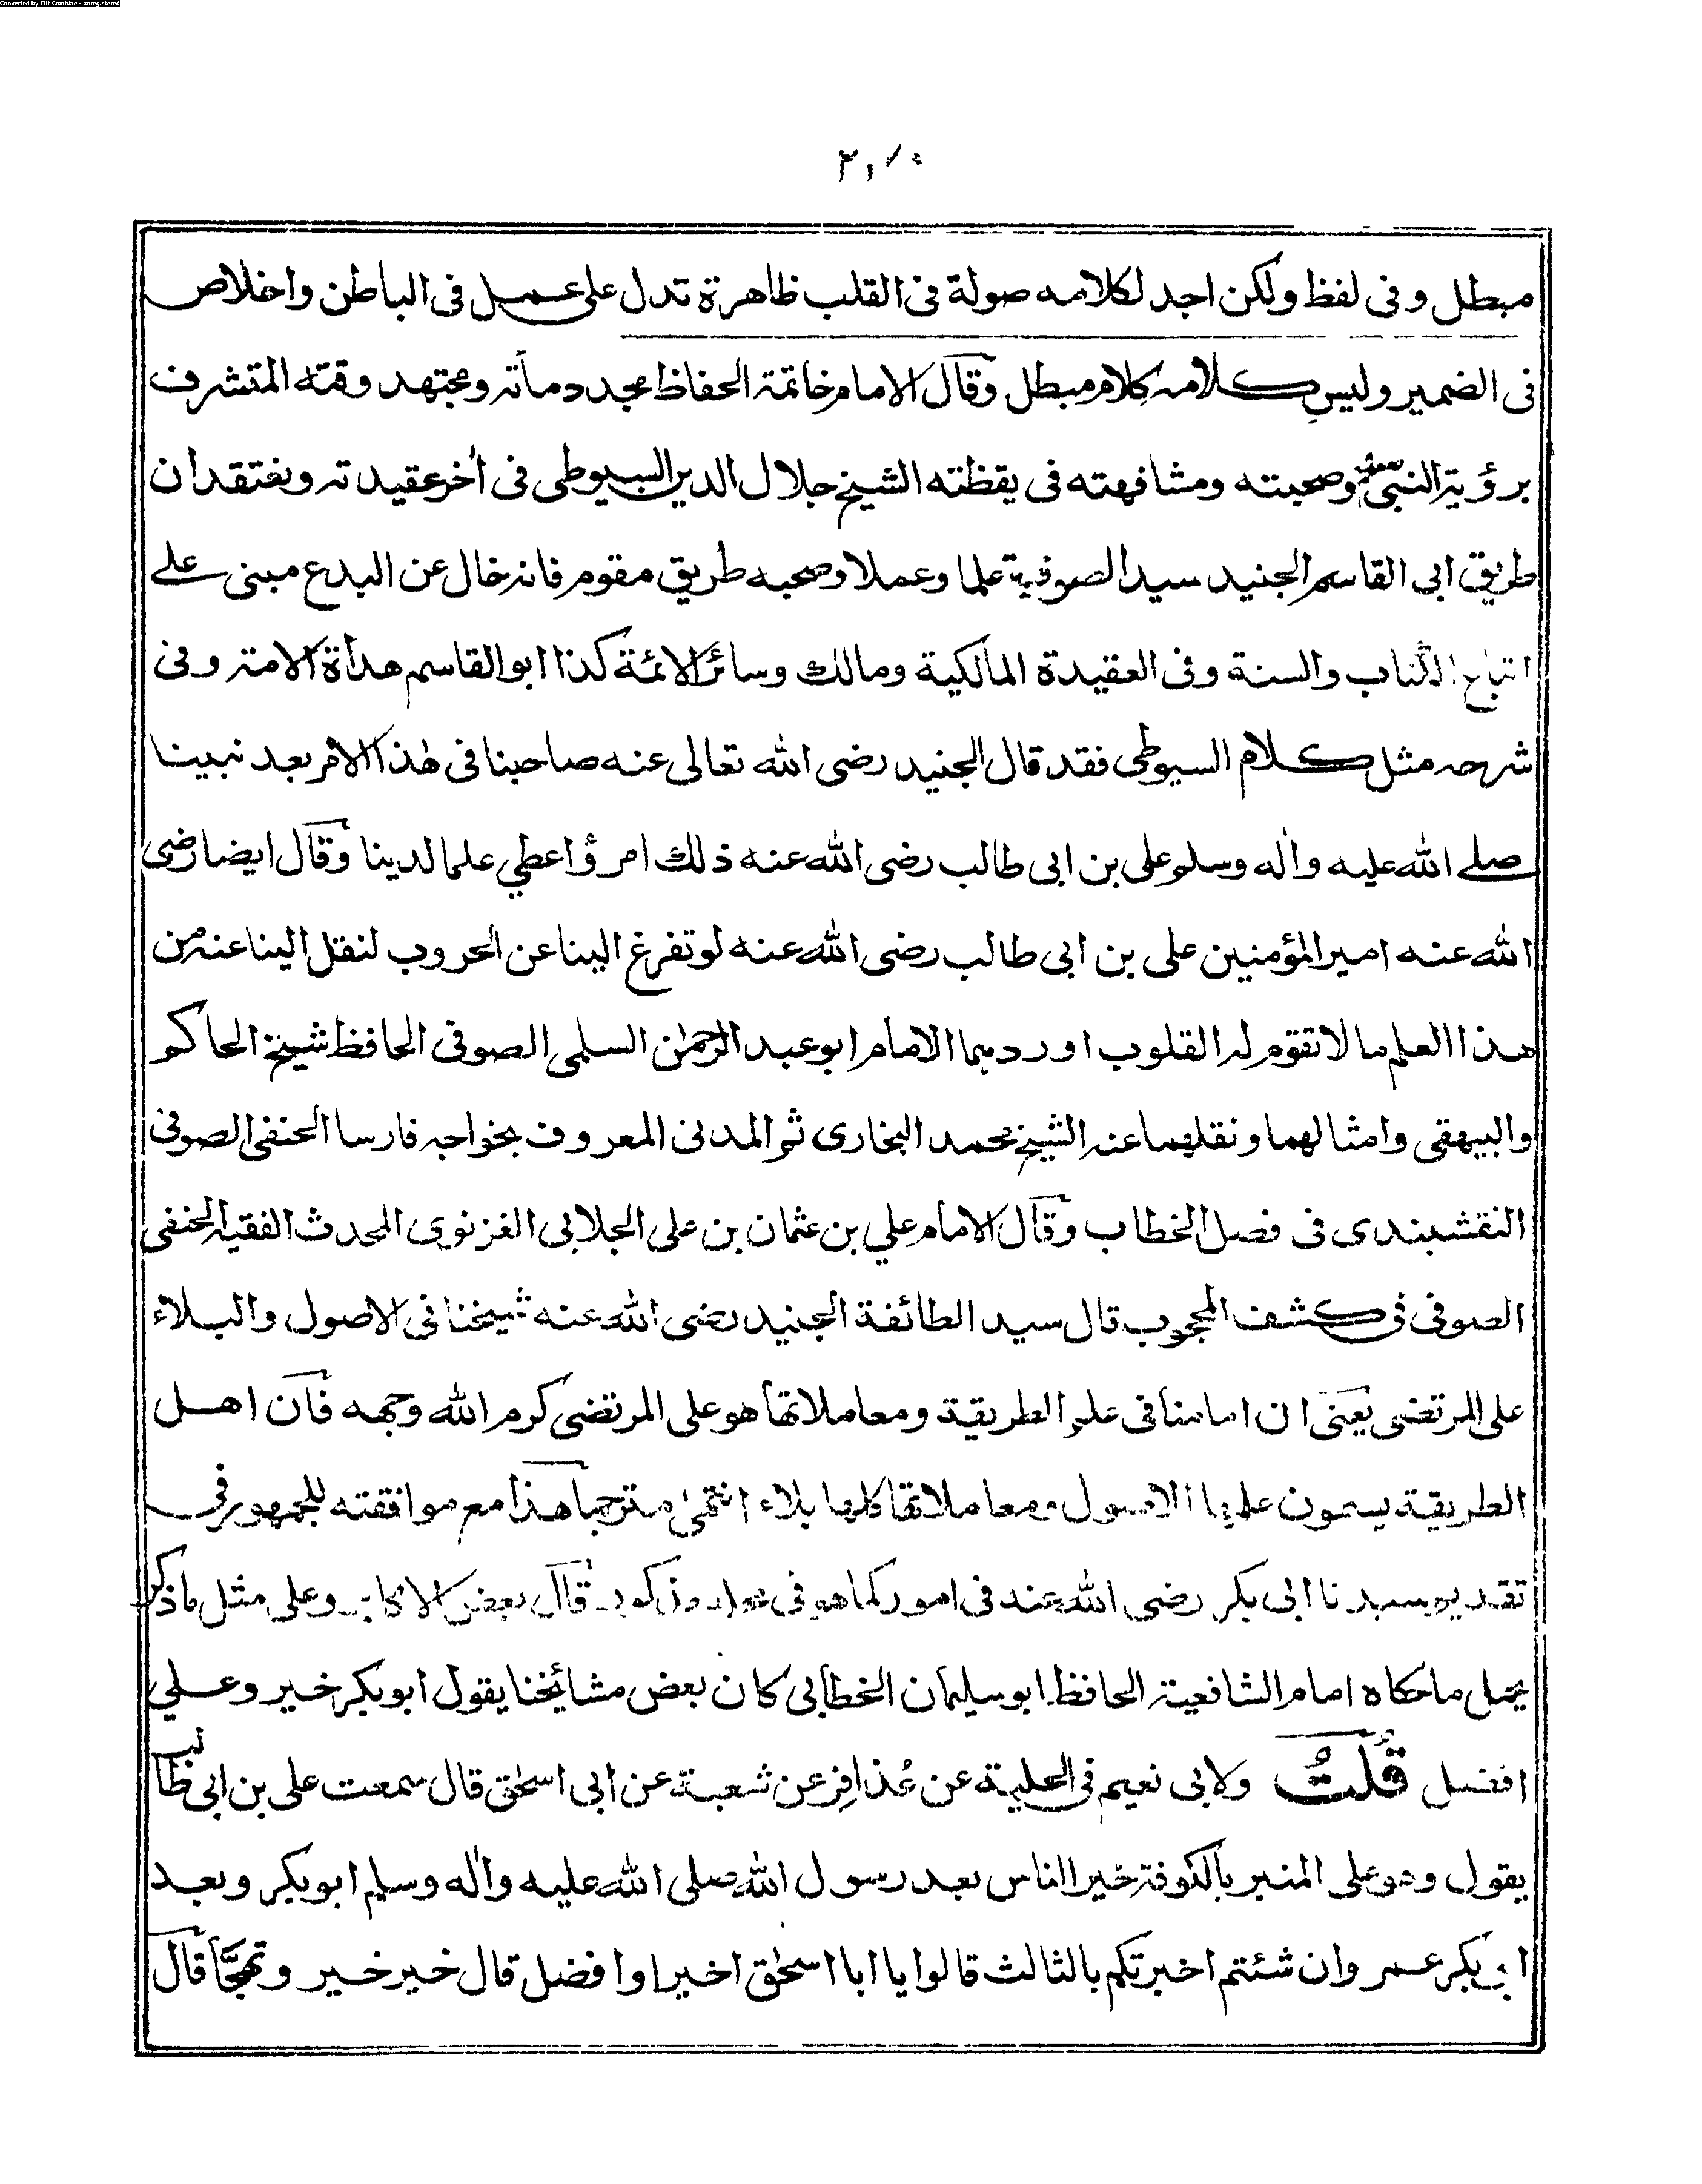 Converted by Tiff Combine - unregistered
مبطل وفى لفظ ولكن اجد لكلامه صولة فى القلب ظاهرة تدل على عمل فى الباطن واخلاص
فى الضمير وليس كلامه كلام مبطل وقال الامام خاتمة الحفاظ مجدد مأته ومجتهد وقته المتشرف
برؤية النبى وصحبته ومشافهته فى يقظته الشيخ جلال الدين السيوطى فى أخر عقيدته ونعتقد ان
طريق ابى القاسم الجنيد سيد الصوفية علما وعملا وصحبه طريق مقوم فانه خال عن البدع مبنى على
اتباع الكتاب والسنة وفى العقيدة المالكية ومالك وسائر الائمة كذا ابو القاسم هداة الامة وفى
شرحه مثل كلام السيوطى فقد قال الجنيد رضى الله تعالى عنه صاحبنا فى هٰذا الامر بعد نبينا
صلے الله عليه واٰله وسلم على بن ابى طالب رضى الله عنه ذلك امرؤ اعطي علما لدينا وقال ايضا رضى
الله عنه امير المؤمنين على بن ابى طالب رضى الله عنه لو تفرغ الينا عن الحروب لنقل الينا عنه من
هذا العلم ما لا تقوم له القلوب اوردهما الامام ابو عبد الرحمٰن السلمى الصوفى الحافظ شيخ الحاكم
والبيهقى وامثالهما ونقلهما عنه الشيخ محمد البخارى ثم المدنى المعروف بخواجه فارسا الحنفى الصوفى
النقشبندى فى فصل الخطاب وقال الامام علي بن عثمان بن على الجلابى الغزنوى المحدث الفقيه الحنفى
الصوفى فى كشف المحجوب قال سيد الطائفة الجنيد رضى الله عنه شيخنا فى الاصول والبلاء
على المرتضى يعنى ان امامنا فى علم الطريقة ومعاملاتها هو على المرتضى كرم الله وجهه فان اهل
الطريقة يسمون علمها الاصول ومعاملاتها كلها بلاء انتهىٰ مترجما هذا مع موافقته للجمهور فى
تقديم سيدنا ابى بكر رضى الله عنه فى امور كما هو فى مذكور قال بعض الاكابر وعلى مثل ما ذكر
يحمل ما حكاه امام الشافعية الحافظ ابو سليمان الخطابى كان بعض مشائخنا يقول ابو بكر خير وعلي
افضل قُلتُ ولابى نعيم فى الحلية عن عُذافِر عن شعبة عن ابى اسحٰق قال سمعت على بن ابى طالب
يقول وهو على المنبر بالكوفة خير الناس بعد رسول الله صلى الله عليه واٰله وسلم ابو بكر وبعد
ابى بكر عمر وان شئتم اخبرتكم بالثالث قالوا يا ابا اسحٰق اخير او افضل قال خير خير وتهجَّا قال